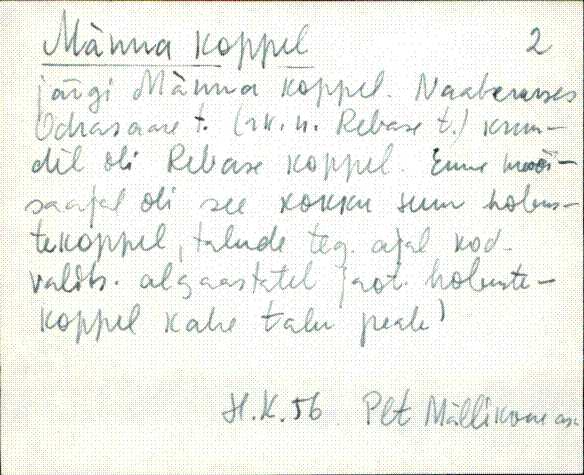 Männa koppel 2
järgi Männa koppel. Naabruses
Odrasaare t. (rk. n. Rebase t.) krun-
dil oli Rebase koppel. Enne mõi-
saajal oli see kokku suur hobus-
tekoppel, talude teg. ajal kod.
valits. algaastatel jaot. hobuste-
koppel kahe talu peale)
H.K. 56 Plt